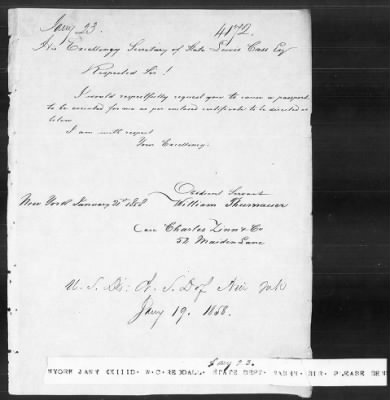 Jany 23. 4172.
His Excellency Secretary of State Lewis Cass Esq
Respected Sir!
I would respectfully request you to cause a passport
to be executed for me as per enclosed certificate to be directed as
below
I am with respect
Your Excellency
Obedient Servant
New York January 21st 1858 William Thurnauer
Care Charles Zinn & Co
52 Maiden Lane
U. S. Dis: S. D of New York
Jany 19. 1858.
Jany 23.
STATE DEPT. PLEASE